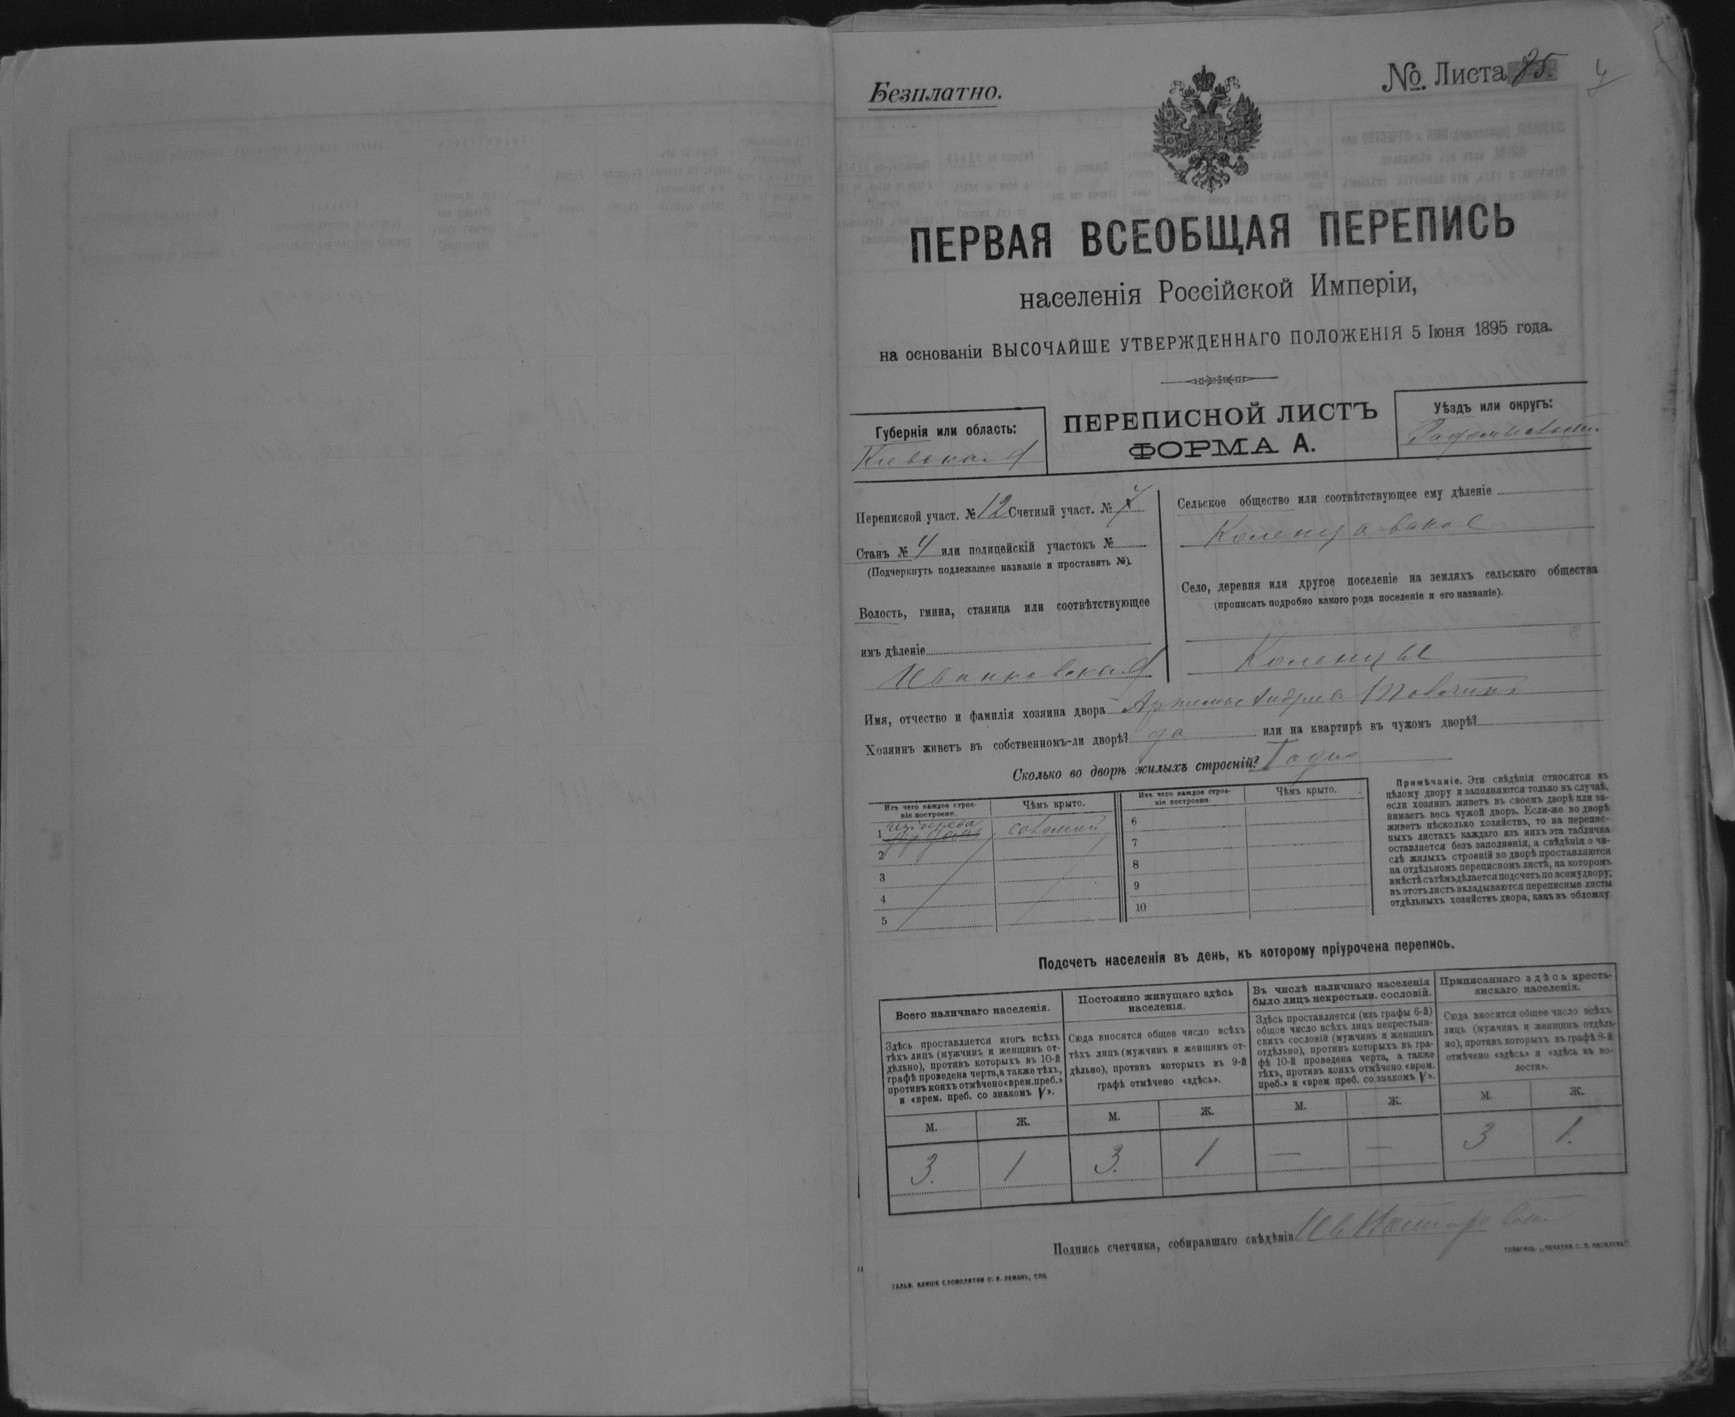 Безплатно.
№ Листа 85.
ПЕРВАЯ ВСЕОБЩАЯ ПЕРЕПИСЬ
населенія Россійской Имперіи,
на основаніи ВЫСОЧАЙШЕ УТВЕРЖДЕННАГО ПОЛОЖЕНІЯ 5 Іюня 1895 года.
Губернія или область:
Кіевская
ПЕРЕПИСНОЙ ЛИСТЪ
ФОРМА А.
Уѣздъ или округъ:
Переписной участ. № 12 Счетный участ. №
Станъ № 4 или полицейскій участокъ №
(Подчеркнуть подлежащее названіе и проставить №).
Волость, гмина, станица или соотвѣтствующее
имъ дѣленіе
Иванковская
Сельское общество или соотвѣтствующее ему дѣленіе
Коленцовское
Село, деревня или другое поселеніе на земляхъ сельскаго общества
(прописать подробно какого рода поселеніе и его названіе).
Коленцы
Имя, отчество и фамилія хозяина двора
Хозяинъ живетъ въ собственномъ-ли дворѣ? да или на квартирѣ въ чужомъ дворѣ?
Сколько во дворѣ жилыхъ строеній?
Изъ чего каждое строе-
ніе построено.
Чѣмъ крыто.
1 изъ дерева соломой
2
3
4
5
Изъ чего каждое строе-
ніе построено.
Чѣмъ крыто.
6
7
8
9
10
Примѣчаніе. Эти свѣдѣнія относятся къ
цѣлому двору и заполняются только въ случаѣ,
если хозяинъ живетъ въ своемъ дворѣ или за-
нимаетъ весь чужой дворъ. Если-же во дворѣ
живетъ нѣсколько хозяйствъ, то на перепис-
ныхъ листахъ каждаго изъ нихъ эта табличка
оставляется безъ заполненія, а свѣдѣнія о чи-
слѣ жилыхъ строеній во дворѣ проставляются
на отдѣльномъ переписномъ листѣ, на которомъ
вмѣстѣ съ тѣмъ дѣлается подсчетъ по всему двору;
въ этотъ листъ вкладываются переписные листы
отдѣльныхъ хозяйствъ двора, какъ въ обложку.
Подсчетъ населенія въ день, къ которому пріурочена перепись.
Всего наличнаго населенія.
Здѣсь проставляется итогъ всѣхъ
тѣхъ лицъ (мужчинъ и женщинъ от-
дѣльно), противъ которыхъ въ 10-й
графѣ проведена черта, а также тѣхъ,
противъ коихъ отмѣчено «врем. преб.»
и «врем. преб. со знакомъ V».
М. Ж.
3. 1
Постоянно живущаго здѣсь
населенія.
Сюда вносится общее число всѣхъ
тѣхъ лицъ (мужчинъ и женщинъ от-
дѣльно), противъ которыхъ въ 9-й
графѣ отмѣчено «здѣсь».
М. Ж.
3. 1
Въ числѣ наличнаго населенія
было лицъ некрестьян. сословій.
Здѣсь проставляется (изъ графы 6-й)
общее число всѣхъ лицъ некрестьян-
скихъ сословій (мужчинъ и женщинъ
отдѣльно), противъ которыхъ въ гра-
фѣ 10-й проведена черта, а также
тѣхъ, противъ коихъ отмѣчено «врем.
преб.» и «врем преб. со знакомъ V».
М. Ж.
— —
Приписаннаго здѣсь кресть-
янскаго населенія.
Сюда вносится общее число всѣхъ
лицъ (мужчинъ и женщинъ отдѣль-
но), противъ которыхъ въ графѣ 8-й
отмѣчено «здѣсь» и «здѣсь въ во-
лости».
М. Ж.
3 1.
Подпись счетчика, собиравшаго свѣдѣнія
ГАЛЬВ. КЛИШЕ СЛОВОЛИТНИ О. И. ЛЕМАНЪ, СПБ.
ТОВАРИЩ. „ПЕЧАТНЯ С. П. ЯКОВЛЕВА"